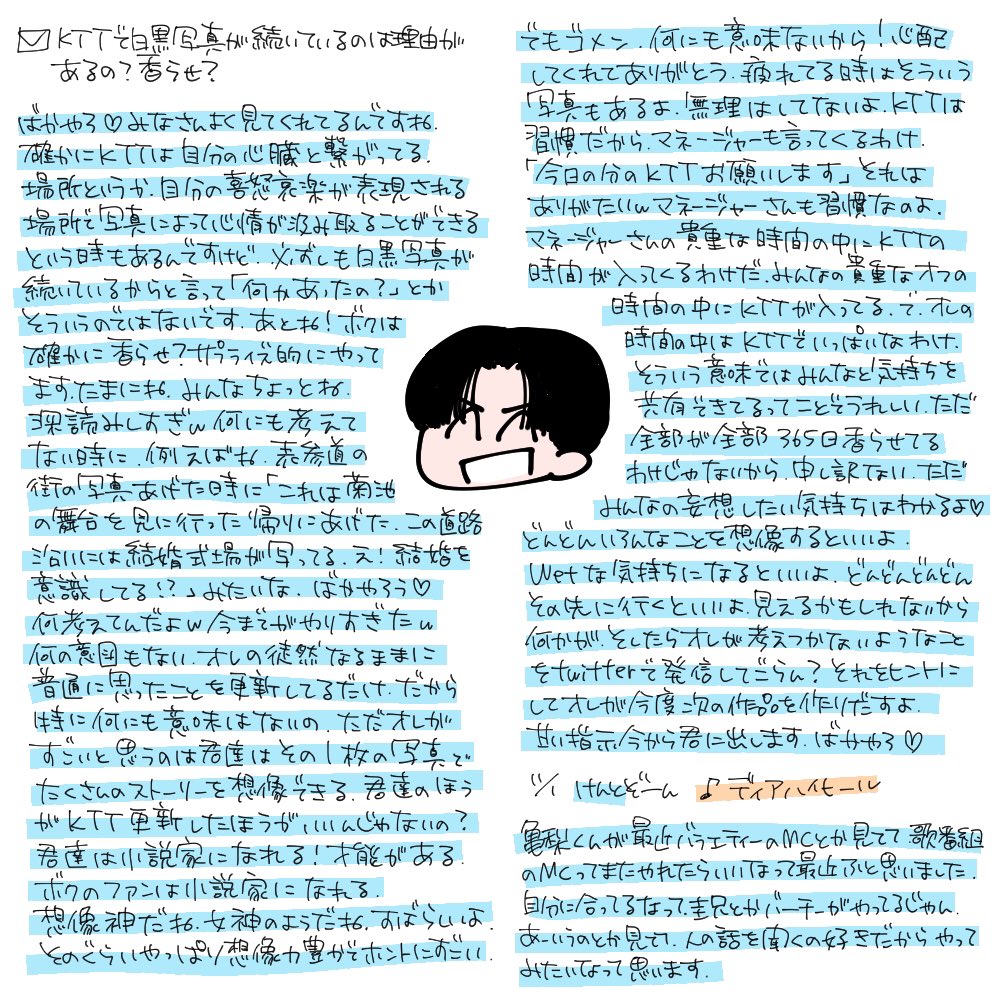 KTTで白黒写真が続いているのは理由が
あるの？香らせ？
ばかやろ♡みなさんよく見てくれてるんですね.
確かにKTTは自分の心臓と繋がってる.
場所というか.自分の喜怒哀楽が表現される
場所で写真によって心情が汲み取ることができる
という時もあるんですけど.必ずしも白黒写真が
続いているからと言って「何かあったの？」とか
そういうのではないです.あとね！ボクは
確かに香らせ？サプライズ的にやって
ます.たまにね.みんなちょっとね.
深読みしすぎw何にも考えて
ない時に.例えばね.表参道の
街の写真あげた時に「これは菊池
の舞台を見に行った帰りにあげた.この道路
沿いには結婚式場が写ってる.え！結婚を
意識してる!?」みたいな.ばかやろう♡
何考えてんだよw今までがやりすぎたw
何の意図もない.オレの徒然なるままに
普通に思ったことを更新してるだけ.だから
特に何にも意味はないの.ただオレが
すごいと思うのは君達はその1枚の写真で
たくさんのストーリーを想像できる.君達のほう
がKTT更新したほうがいいんじゃないの？
君達は小説家になれる！才能がある.
ボクのファンは小説家になれる.
想像神だね.女神のようだね.すばらしいよ.
そのぐらいやっぱり想像力豊かでホントにすごい.
でもゴメン.何にも意味ないから！心配
してくれてありがとう.疲れてる時はそういう
写真もあるよ.無理はしてないよ.KTTは
習慣だから.マネージャーも言ってくるわけ.
「今日の分のKTTお願いします」それは
ありがたいwマネージャーさんも習慣なのよ.
マネージャーさんの貴重な時間の中にKTTの
時間が入ってくるわけだ.みんなの貴重なオフの
時間の中にKTTが入ってる.で.オレの
時間の中はKTTでいっぱいなわけ.
そういう意味ではみんなと気持ちを
共有できてるってことでうれしい.ただ
全部が全部365日香らせてる
わけじゃないから.申し訳ない.ただ
みんなの妄想したい気持ちはわかるよ♡
どんどんいろんなことを想像するといいよ.
Wetな気持ちになるといいよ.どんどんどんどん
その先に行くといいよ.見えるかもしれないから
何かが.そしたらオレが考えつかないようなこと
をtwitterで発信してごらん？それをヒントに
してオレが今度次の作品を作りだすよ.
甘い指示今から君に出します.ばかやろ♡
11/1 けんとぞーん ♪ディアハイモール
亀梨くんが最近バラエティーのMCとか見てて歌番組
のMCってまたやれたらいいなって最近ふと思いました.
自分に合ってるなって.圭兄とかバーチーがやってるじゃん.
あーいうのとか見てて.人の話を聞くの好きだからやって
みたいなって思います.